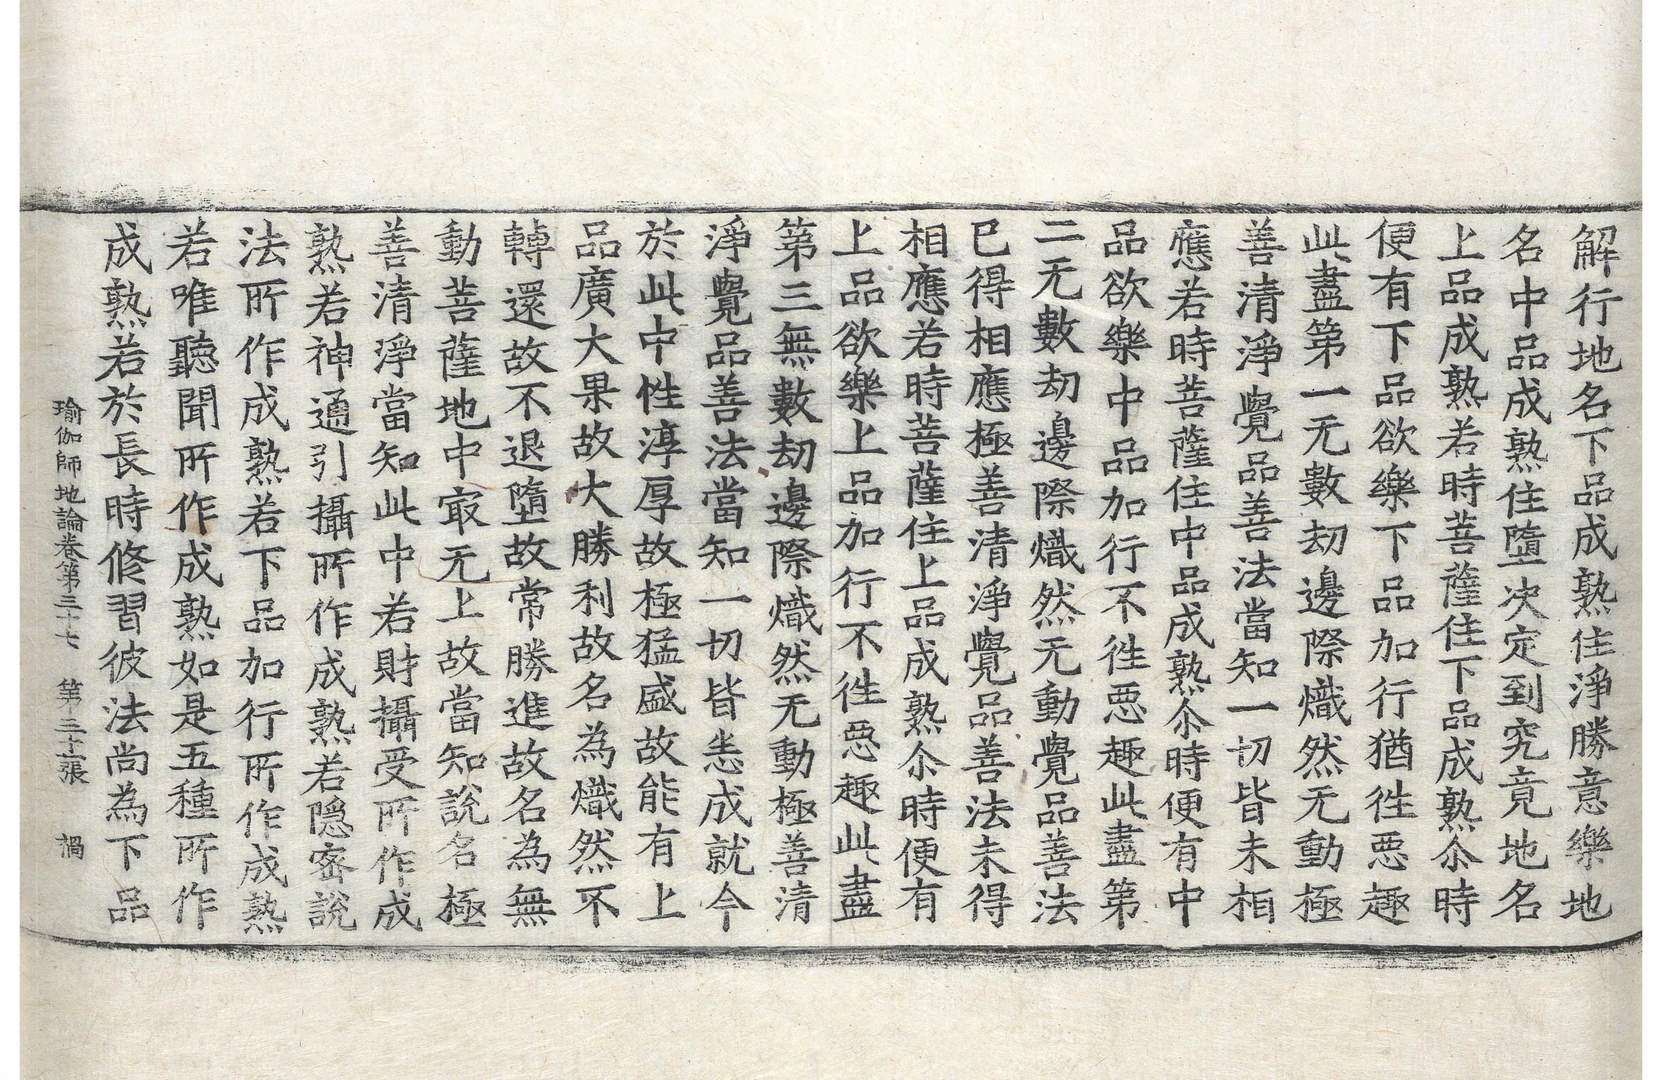 解行地名下品成熟住淨勝意樂地
名中品成熟住墮决定到究竟地名
上品成熟若時菩薩住下品成熟尒時
便有下品欲樂下品加行猶徃惡趣
此盡第一无數劫邊際熾然无動極
善清淨覺品善法當知一切皆未相
應若時菩薩住中品成熟尒時便有中
品欲樂中品加行不徃惡趣此盡第
二无數劫邊際熾然无動覺品善法
已得相應極善清淨覺品善法未得
相應若時菩薩住上品成熟尒時便有
上品欲樂上品加行不徃惡趣此盡
第三無數劫邊際熾然无動極善清
淨覺品善法當知一切皆悉成就今
於此中性淳厚故極猛盛故能有上
品廣大果故大勝利故名為熾然不
轉還故不退墮故常勝進故名為無
動菩薩地中㝡无上故當知說名極
善清淨當知此中若財攝受所作成
熟若神通引攝所作成熟若隱密說
法所作成熟若下品加行所作成熟
若唯聽聞所作成熟如是五種所作
成熟若於長時修習彼法尚為下品
瑜伽師地論卷第三十七 第三十張 禍